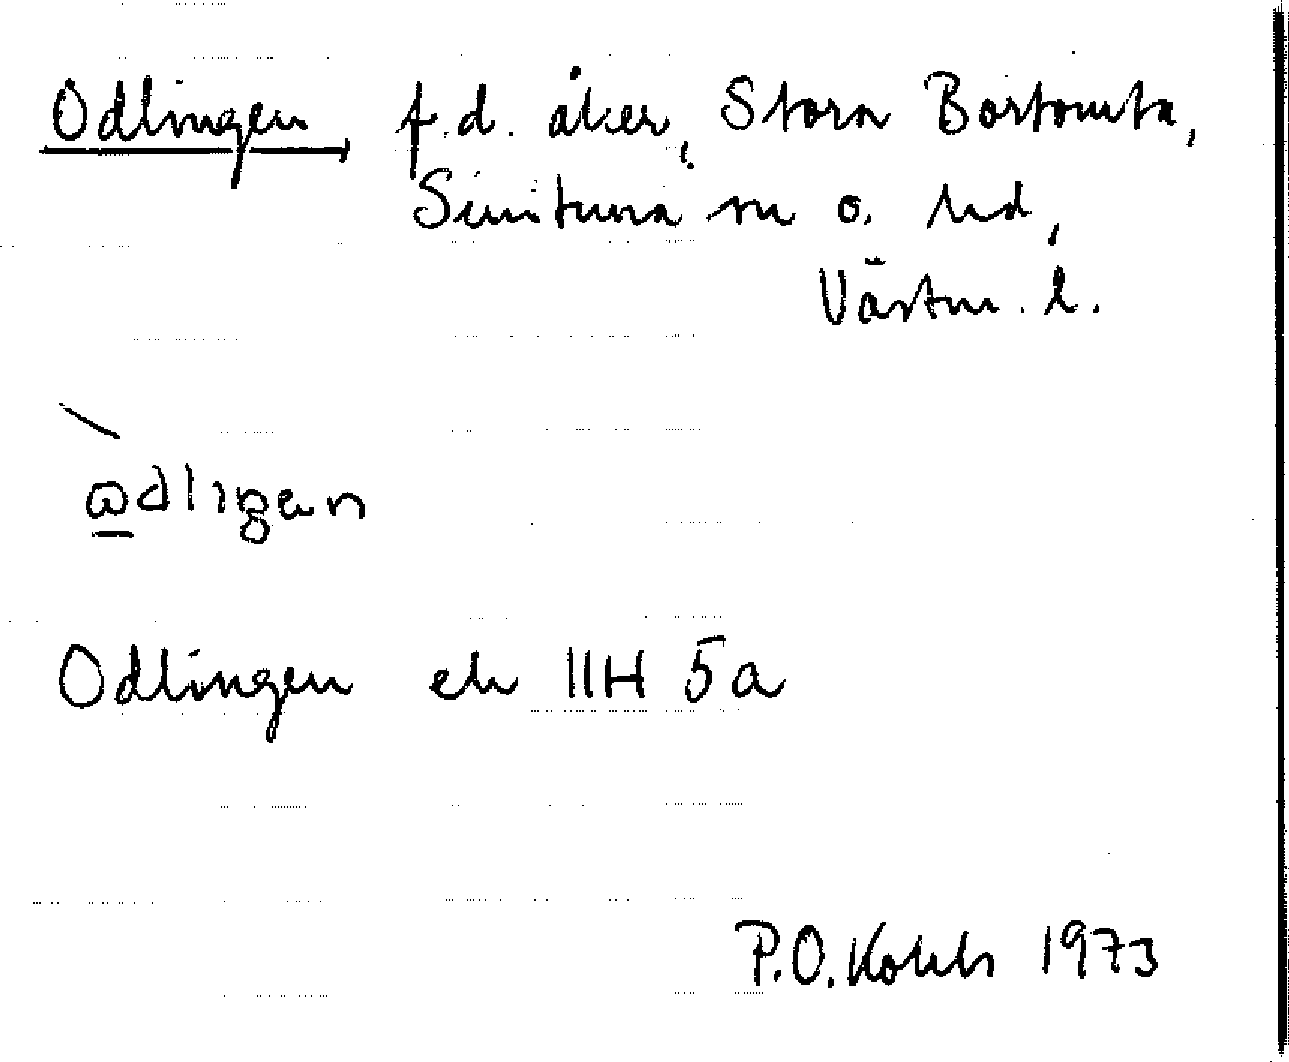 Odlingen, f.d. åker, Stora Bortomta,
Simtuna sn o. hd,
Västm. l.
Odlingen ek 11H 5a
P.O. 1973